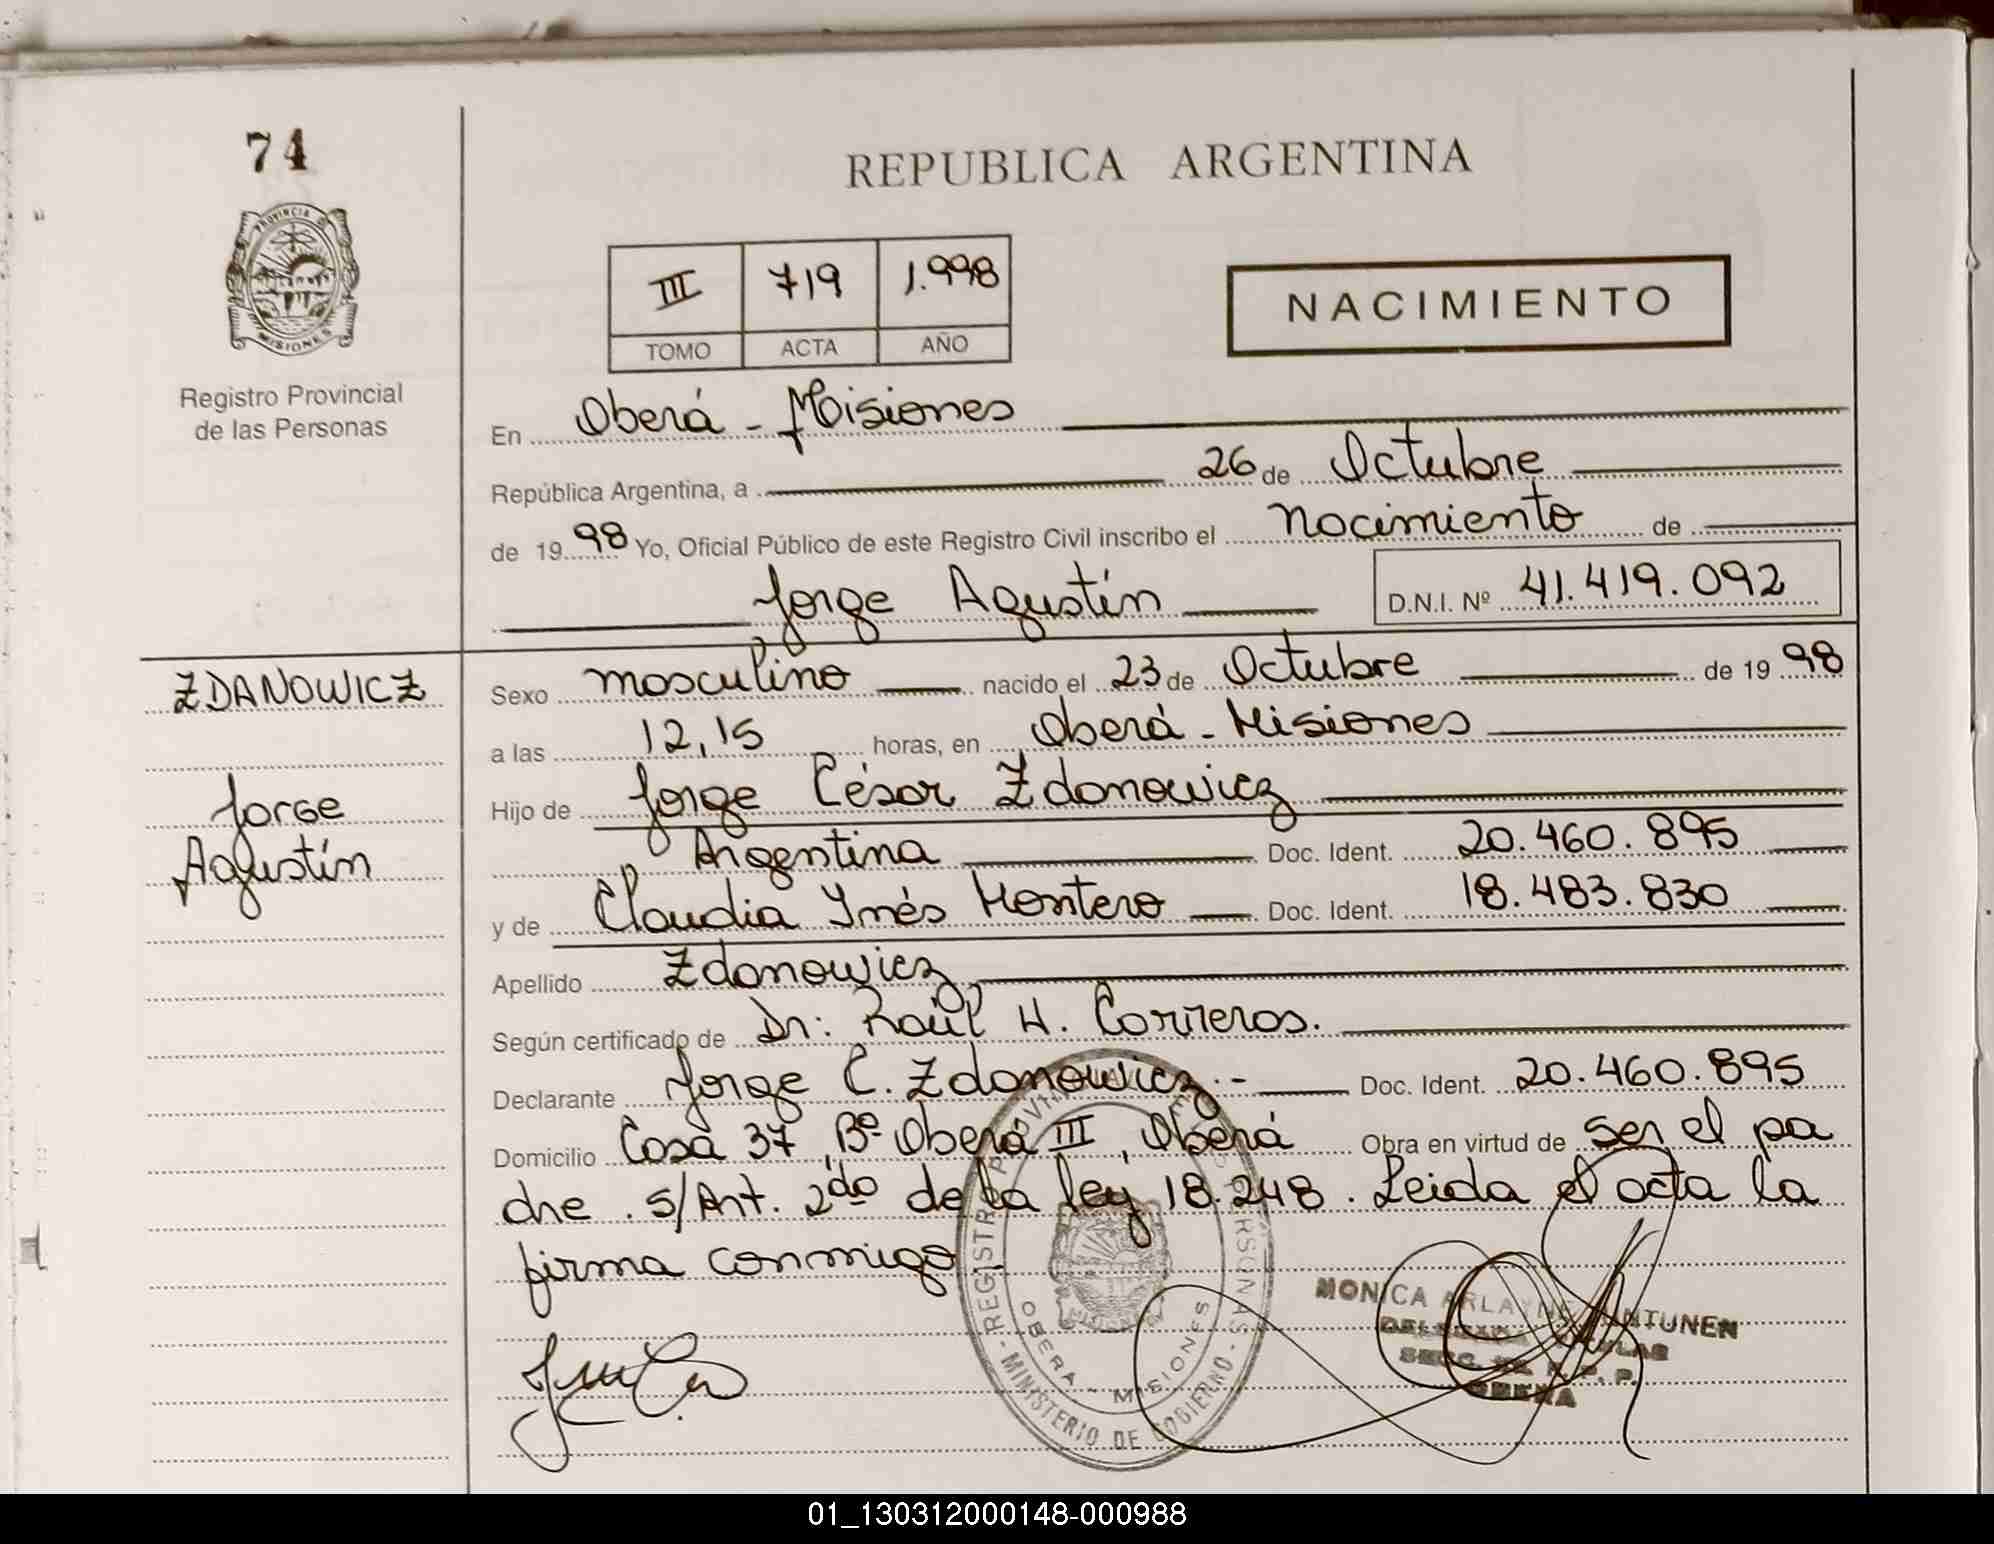 74
REPUBLICA ARGENTINA
PROVINCIA DE
MISIONES
III 719 1.998
TOMO ACTA AÑO
NACIMIENTO
Registro Provincial
de las Personas
En Oberá - Misiones
República Argentina, a 26 de Octubre
de 19 98 Yo, Oficial Público de este Registro Civil inscribo el nacimiento de
Jorge Agustín D.N.I. Nº 41.419.092
ZDANOWICZ
Jorge
Agustín
Sexo masculino nacido el 23 de Octubre de 19 98
a las 12,15 horas, en Oberá - Misiones
Hijo de Jorge César Zdanowicz
Argentina Doc. Ident. 20.460.895
y de Claudia Inés Montero Doc. Ident. 18.483.830
Apellido Zdanowicz
Según certificado de Dr: Raúl H.
Declarante Jorge C. Zdanowicz.- Doc. Ident. 20.460.895
Domicilio Casa 37, Bº Oberá III, Oberá Obra en virtud de ser el pa
dre. s/Art. 2do de la ley 18.248. Leida el acta la
firma conmigo
REGISTRO
OBERA - MISIONES
- MINISTERIO DE GOBIERNO -
MONICA ARLAYNE ANTUNEN
OBERA
01_130312000148-000988